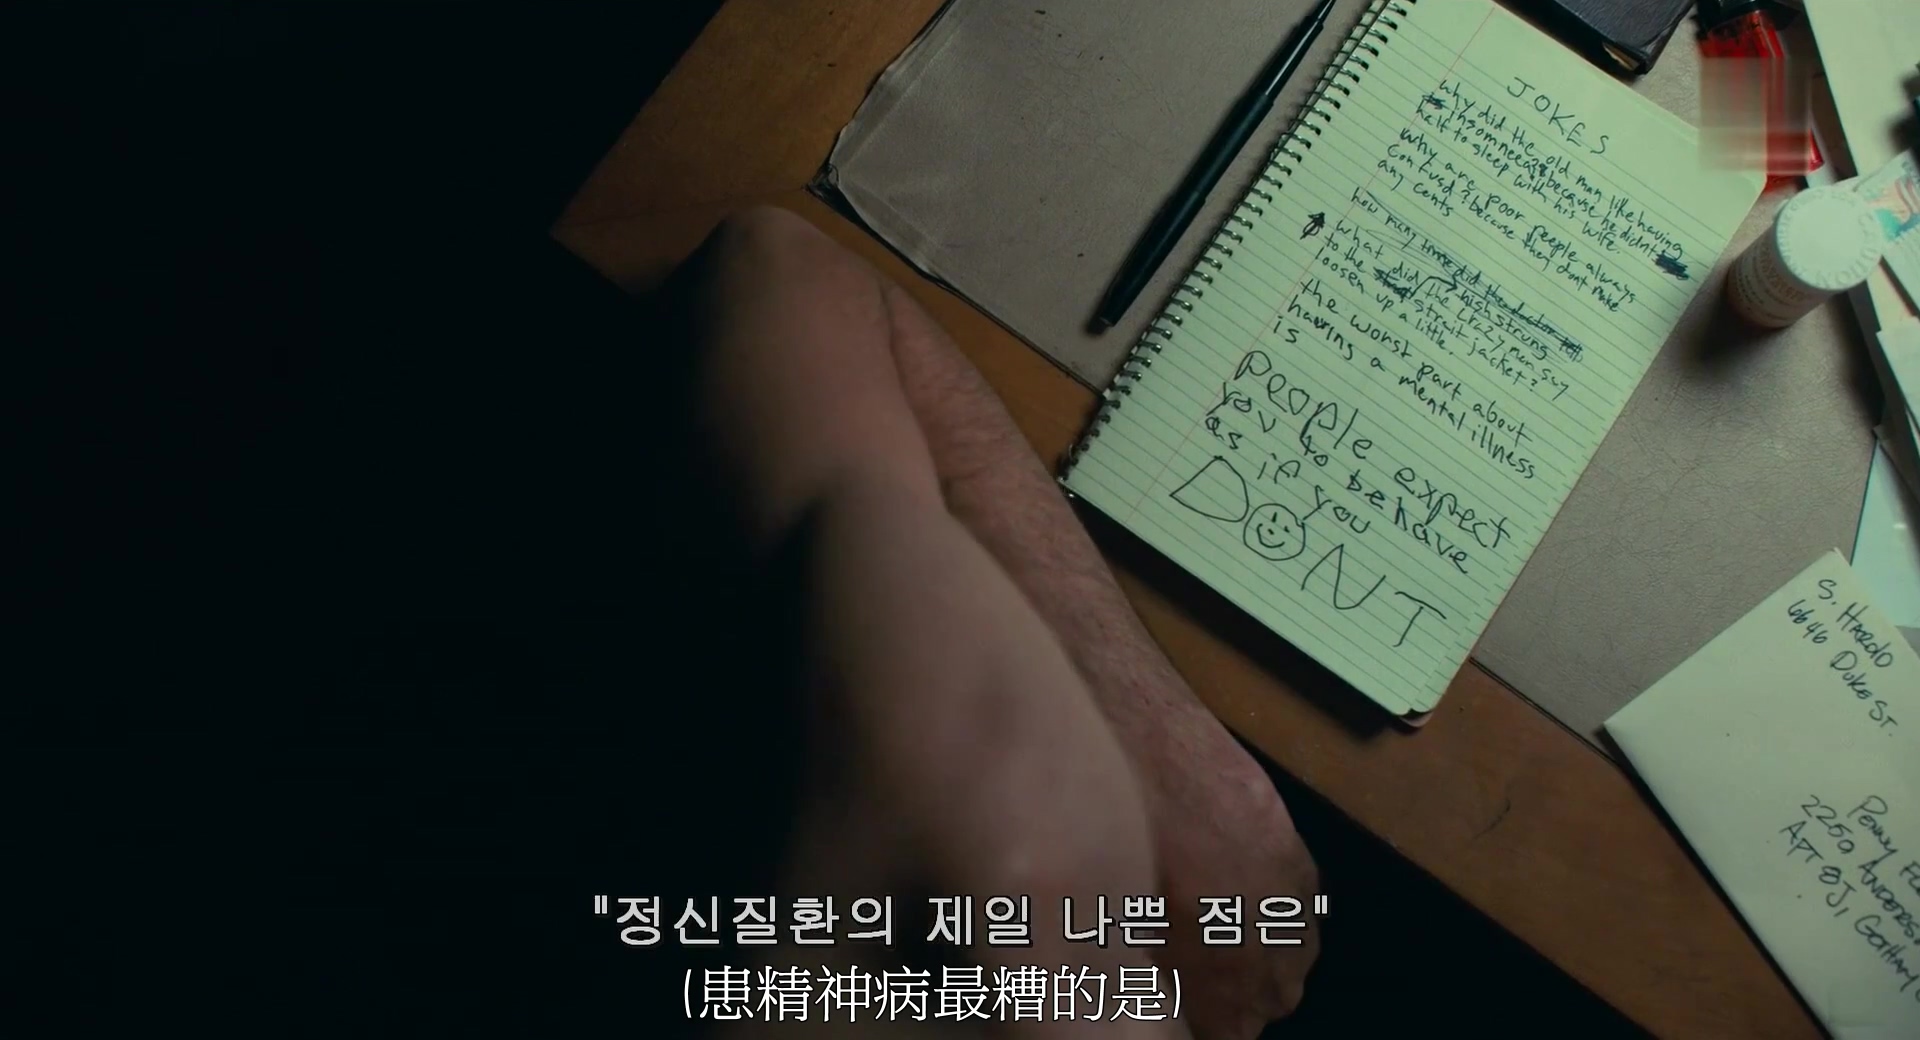 JOKES
why did the old man like having
insomneea? because he didnt
half to sleep with his wife.
why are poor people always
confusd? because they dont make
any cents
how many times did the doctor
what did the crazy man say
high strung
to the strait jacket?
loosen up a little.
the worst part about
having a mental illness
is
people expect
you to behave
as if you
DONT
S. HAROLD
6646 DUKE ST.
PENNY
2250 ANDERS
APT 8J, GOTHAM
"정신질환의 제일 나쁜 점은"
(患精神病最糟的是)